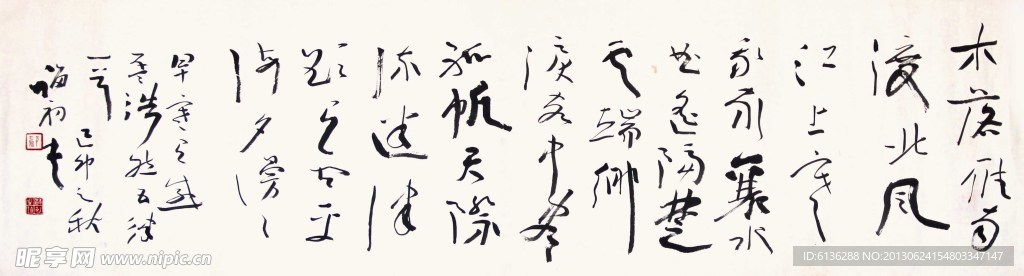 木落雁南
渡北风
江上寒
我家襄水
曲遥隔楚
云端乡
淚客中尽
孤帆天際
迷津
欲有问平
海夕漫々
早寒有感
孟浩然五律
一首
己卯之秋
昵享网 www.nipic.cn
ID:6136288 NO:20130624154803347147